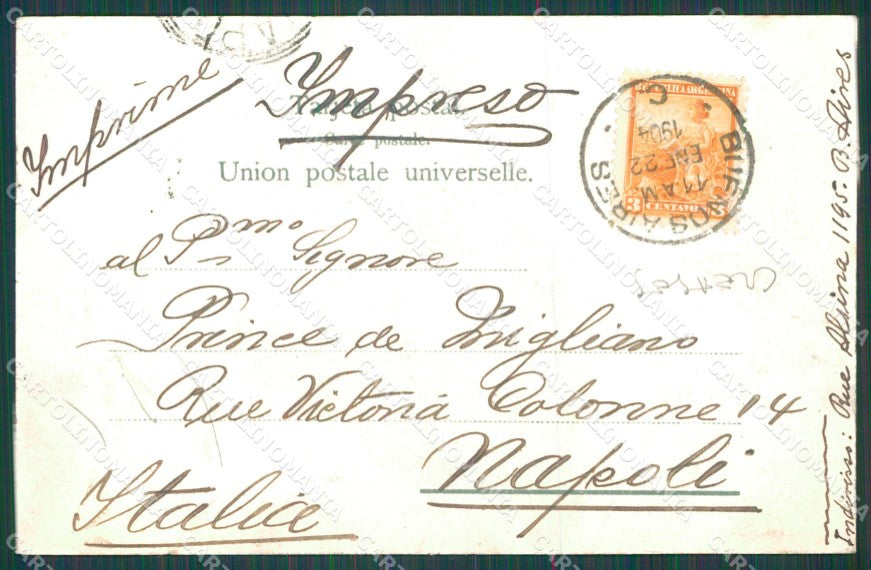 Imprime
Impreso
Tarjeta postal.
Carte postale.
Union postale universelle.
REPUBLICA ARGENTINA
3 CENTAVOS 3
BUENOS AIRES
C
1904
ENE 22
11 AM
al P.mo Signore
Prince de Migliano
Rue Victoria Colonne 14
Napoli
Italia
Indirisso: Rue Alsina 1195. B. Aires
CARTOLINOMANIA